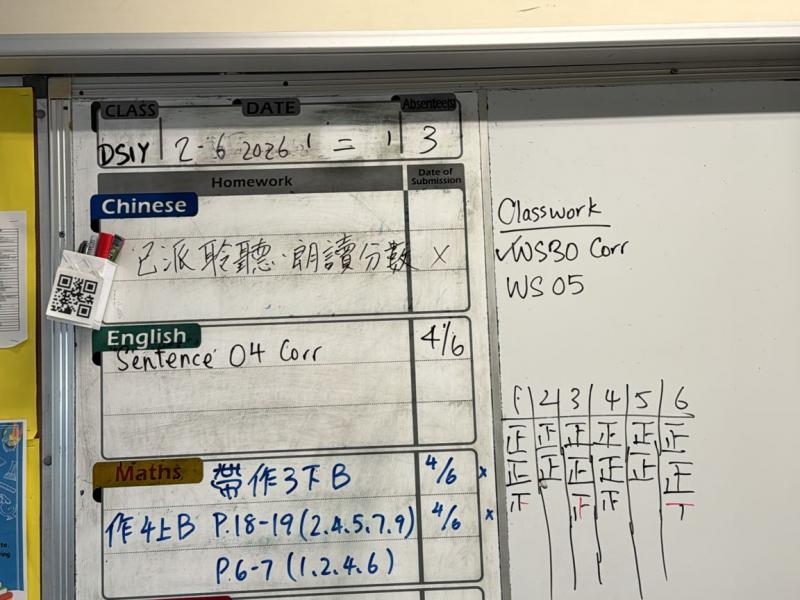 CLASS DATE Absentee(s)
DS1Y 2-6 2026 二 3
Homework Date of Submission
Chinese
已派聆聽、朗讀分數 ×
English
Sentence 04 Corr 4/6
Maths
帶作3下B 4/6 ×
作4上B P.18-19 (2.4.5.7.9) 4/6 ×
P.6-7 (1.2.4.6)
Classwork
✓WS30 Corr
WS 05
1 2 3 4 5 6
正 正 正 正 正 正
正 正 正 正 正 正